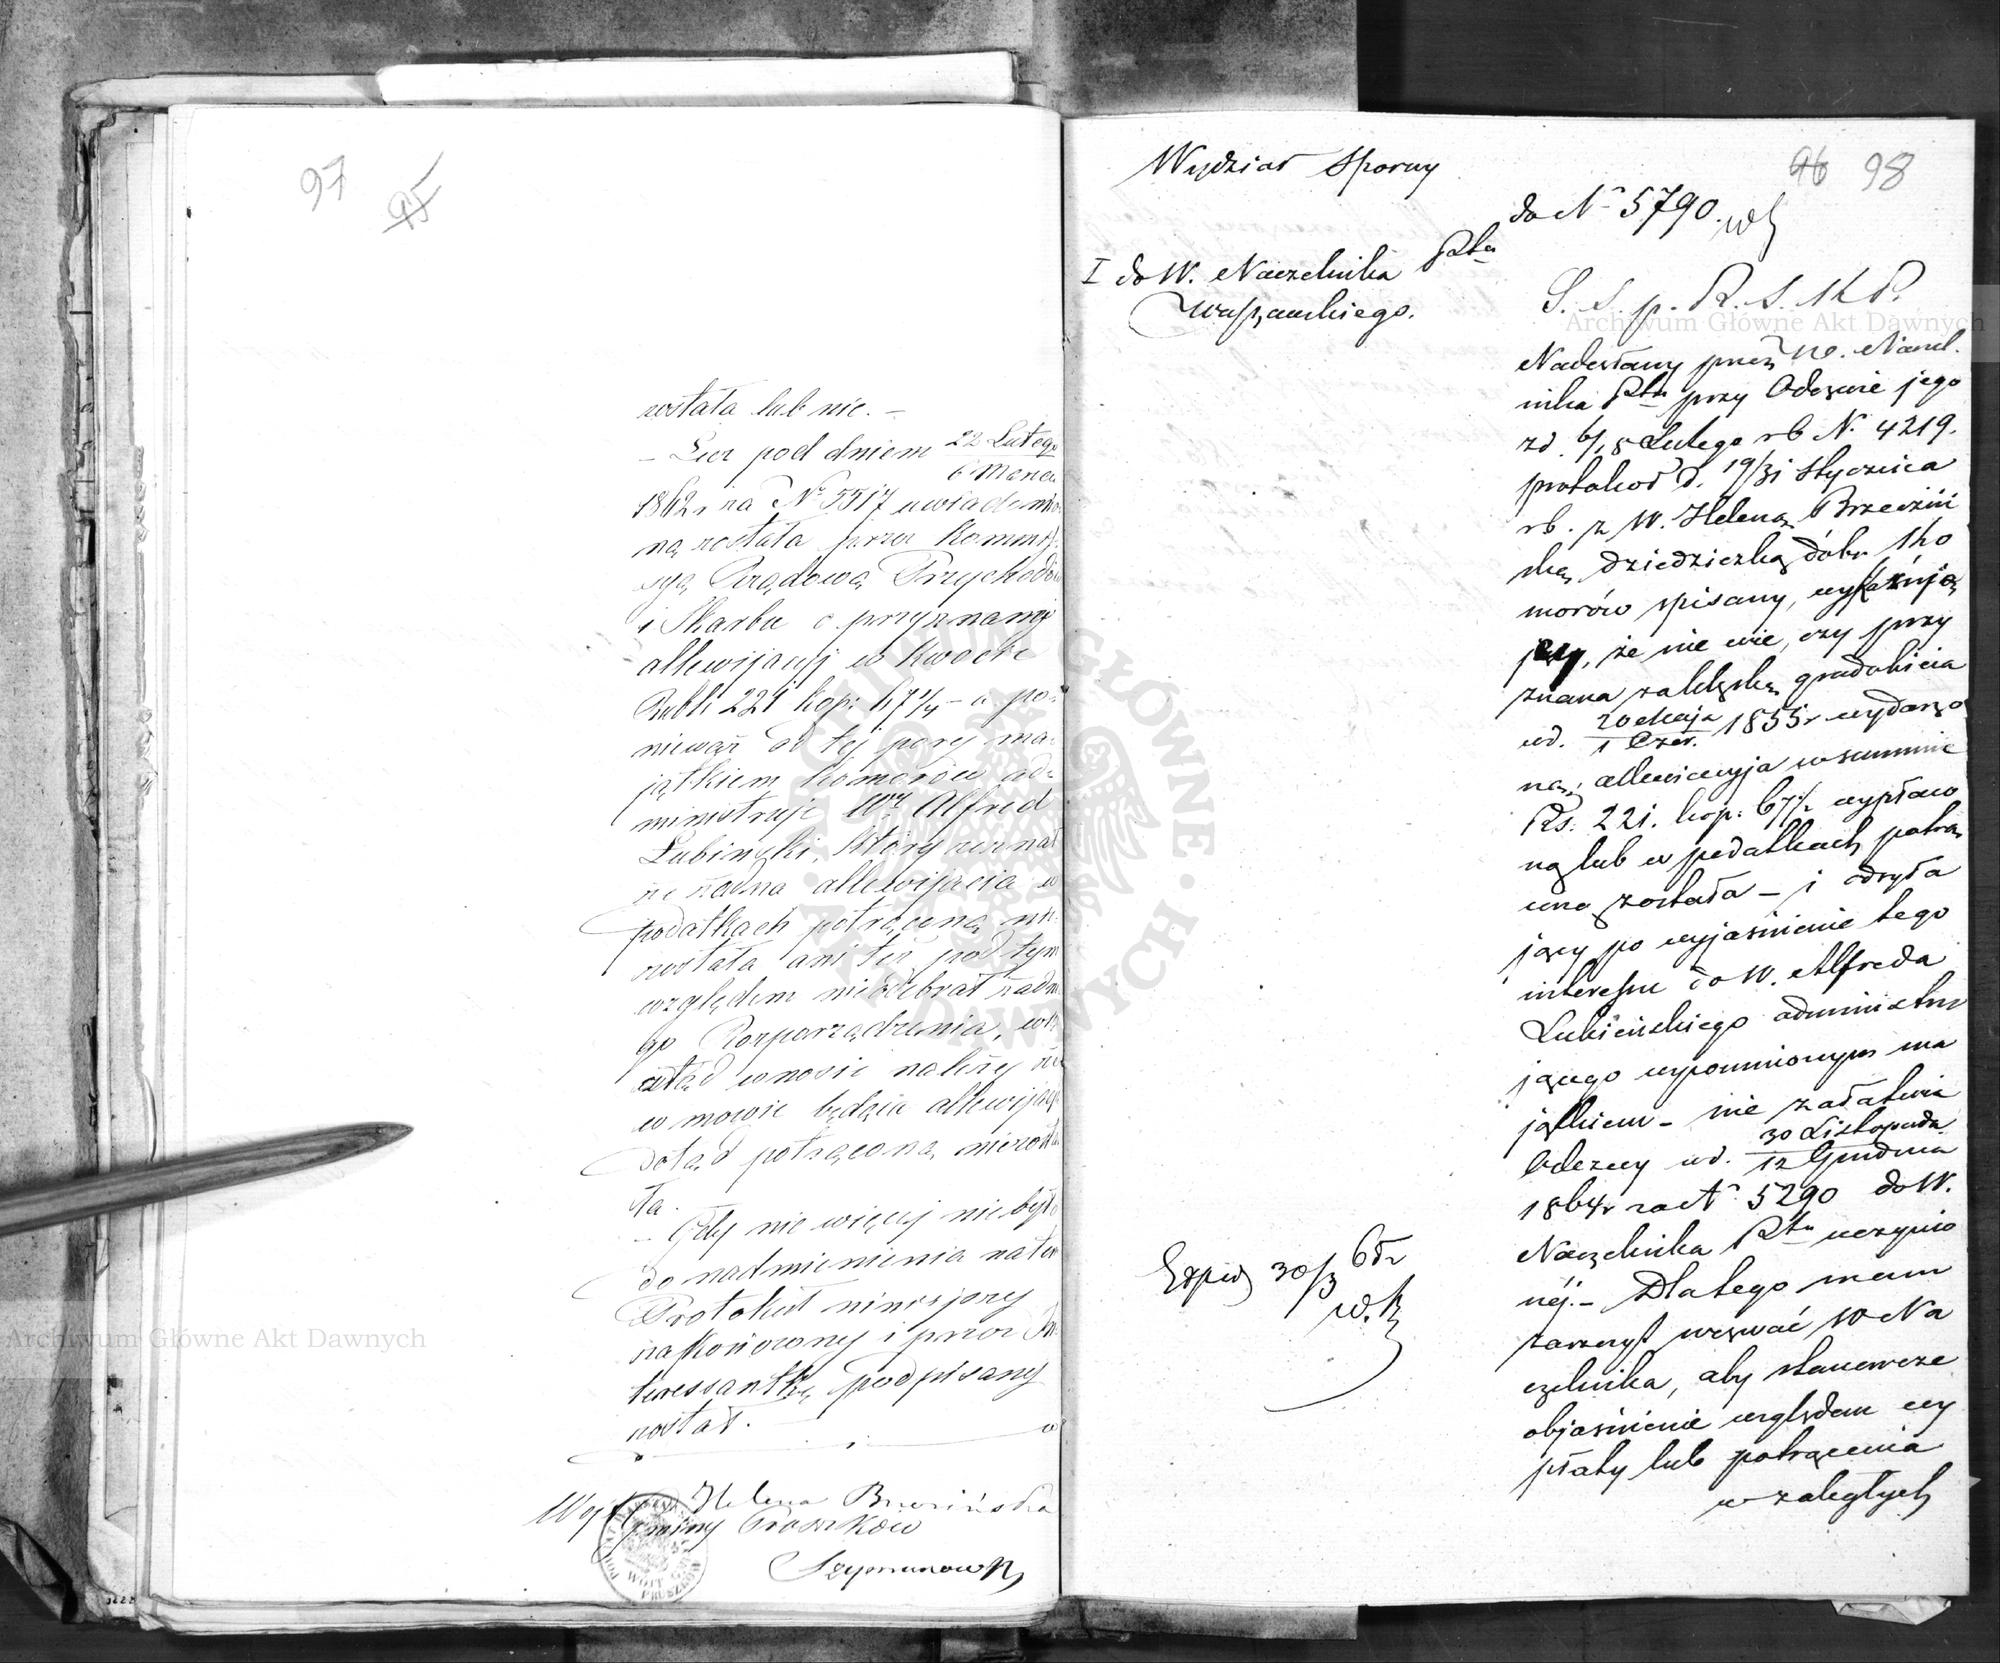 97 95
została lub nie. –
– Lecz pod dniem 22 Lutego
6 Marca
1862 r za No 5517 uwiadomio
ną została przez Kommis
syą Rządową Przychodów
i Skarbu o przyznanej
allewijacyj w kwocie
Rubli 221 kop: 67 1/4 – a po-
nieważ od tej pory ma-
jątkiem Komorów ad-
ministruje Wny Alfred
Łubiński, który zeznał
że żadna allewijacia w
podatkach potrąconą nie
została ani też pod tym
względem nieodebrał żadne
go Rozporządzenia,
ztąd wnosić należy że
w mowie będąca allewijacya
dotąd potrąconą niezosta
ła.
– Gdy nic więcej niebyło
do nadmienienia na tem
Protokół niniejszy
zakończony i przez In
teressantkę podpisany
został.
Helena Brzezińska
Wojt gminy Pruszków
Szymanowski
WÓJT GMINY
PRUSZKÓW
96 98
Wydział Sporny
do No 5790
I do W. Naczelnika Ptu
Warszawskiego.
Nadesłany przez W. Naczel.
nika Ptu przy Odezwie jego
z d. 6/18 Lutego rb No 4219.
protokoł d. 19/31 Stycznia
rb. z W. Heleną Brzeziń
ską dziedziczką dóbr Ko
morów spisany, wykazują
cy, że nie wie, czy przy
znana za klęskę gradobicia
w d. 20 Maja
1 Czer. 1855 r wydarzo
ną, allewiacyja w summie
Rs. 221. kop: 67 1/2 wypłaco
ną lub w podatkach potrą
coną została – i odsyła
jący po wyjaśnienie tego
interesu do W. Alfreda
Łubieńskiego administru
jącego wspomnionym ma
jątkiem – nie załatwia
Odezwy z d. 30 Listopada
12 Grudnia
1864 r za No 5290 do W.
Naczelnika Ptu uczynio
nej. – Dlatego mam
zaszczyt wezwać W Na
czelnika, aby stanowcze
objaśnienie względem wy
płaty lub potrącenia
w zaległych
Exped 30/3 65 r
Archiwum Główne Akt Dawnych
Archiwum Główne Akt Dawnych
ARCHIWUM GŁÓWNE AKT DAWNYCH